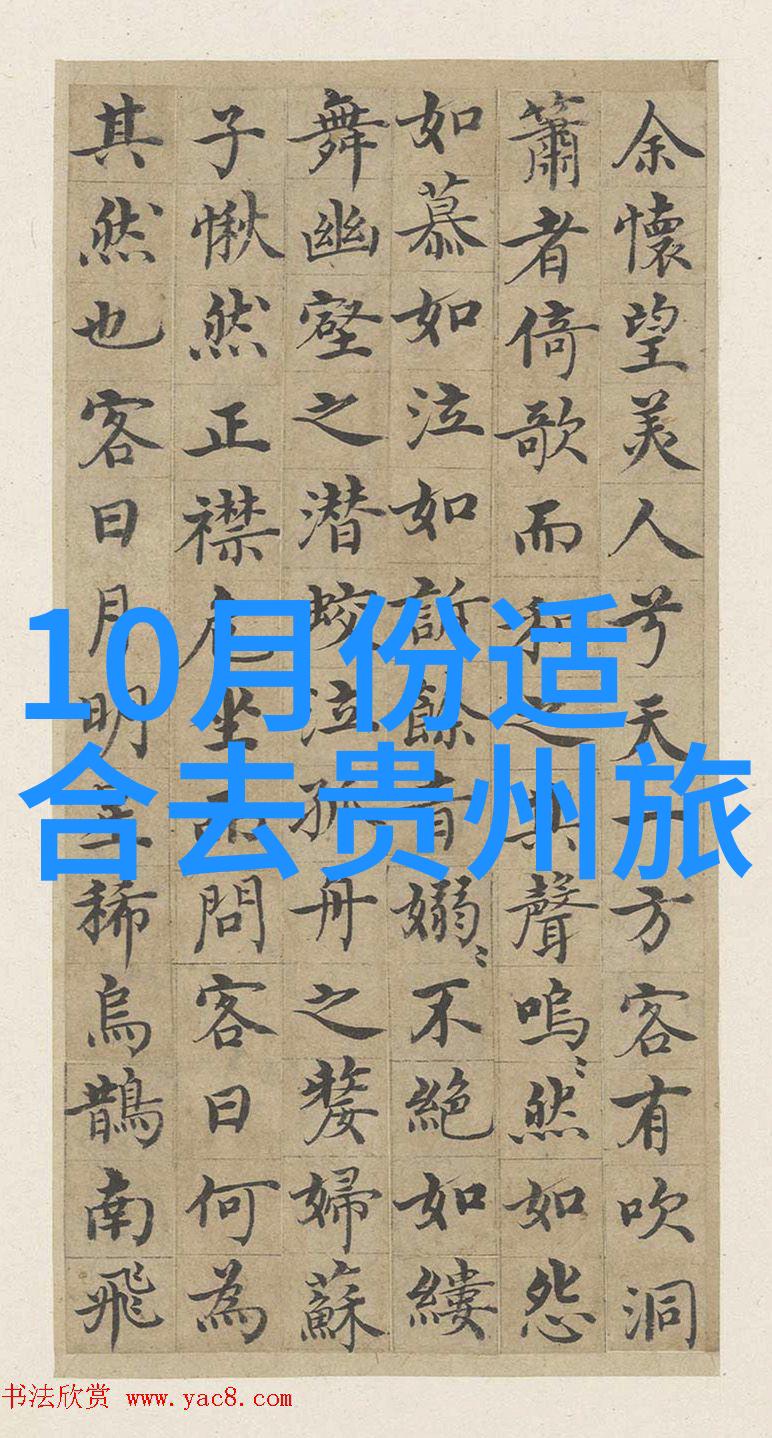 余懷望美人兮天一方客有吹洞
簫者倚歌而和之其聲嗚〻然如怨
如慕如泣如訴餘音嫋〻不絕如縷
舞幽壑之潛蛟泣孤舟之嫠婦蘇
子愀然正襟危坐而問客曰何為
其然也客曰月明星稀烏鵲南飛
10月份适
合去贵州旅
书法欣赏 www.yac8.com